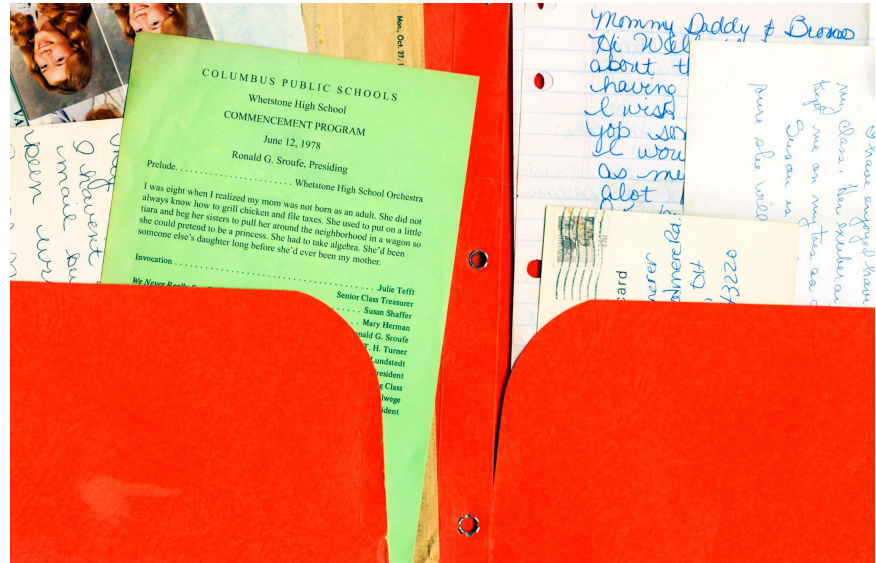 Mon, Oct. 27, 1
COLUMBUS PUBLIC SCHOOLS
Whetstone High School
COMMENCEMENT PROGRAM
June 12, 1978
Ronald G. Sroufe, Presiding
Prelude. . . . . . . . . . . . . . . . . . . . . . . . . Whetstone High School Orchestra
I was eight when I realized my mom was not born as an adult. She did not
always know how to grill chicken and file taxes. She used to put on a little
tiara and beg her sisters to pull her around the neighborhood in a wagon so
she could pretend to be a princess. She had to take algebra. She'd been
someone else's daughter long before she'd ever been my mother.
Invocation . . . . . . . . . . . . . . . . . . . . . . . . . . . . . . . . . . . . Julie Tefft
Senior Class Treasurer
We Never Really
Susan Shaffer
Mary Herman
onald G. Sroufe
T. H. Turner
Lundstedt
resident
g Class
lwege
ident
I havent
mail
been
Mommy Daddy &
Hi
about
having
I wish
I wou
as me
alot
I have enjoyed havi
my class. Her exuberan
kept me on my toes as
Susan is
sure she will
card
OH
43220